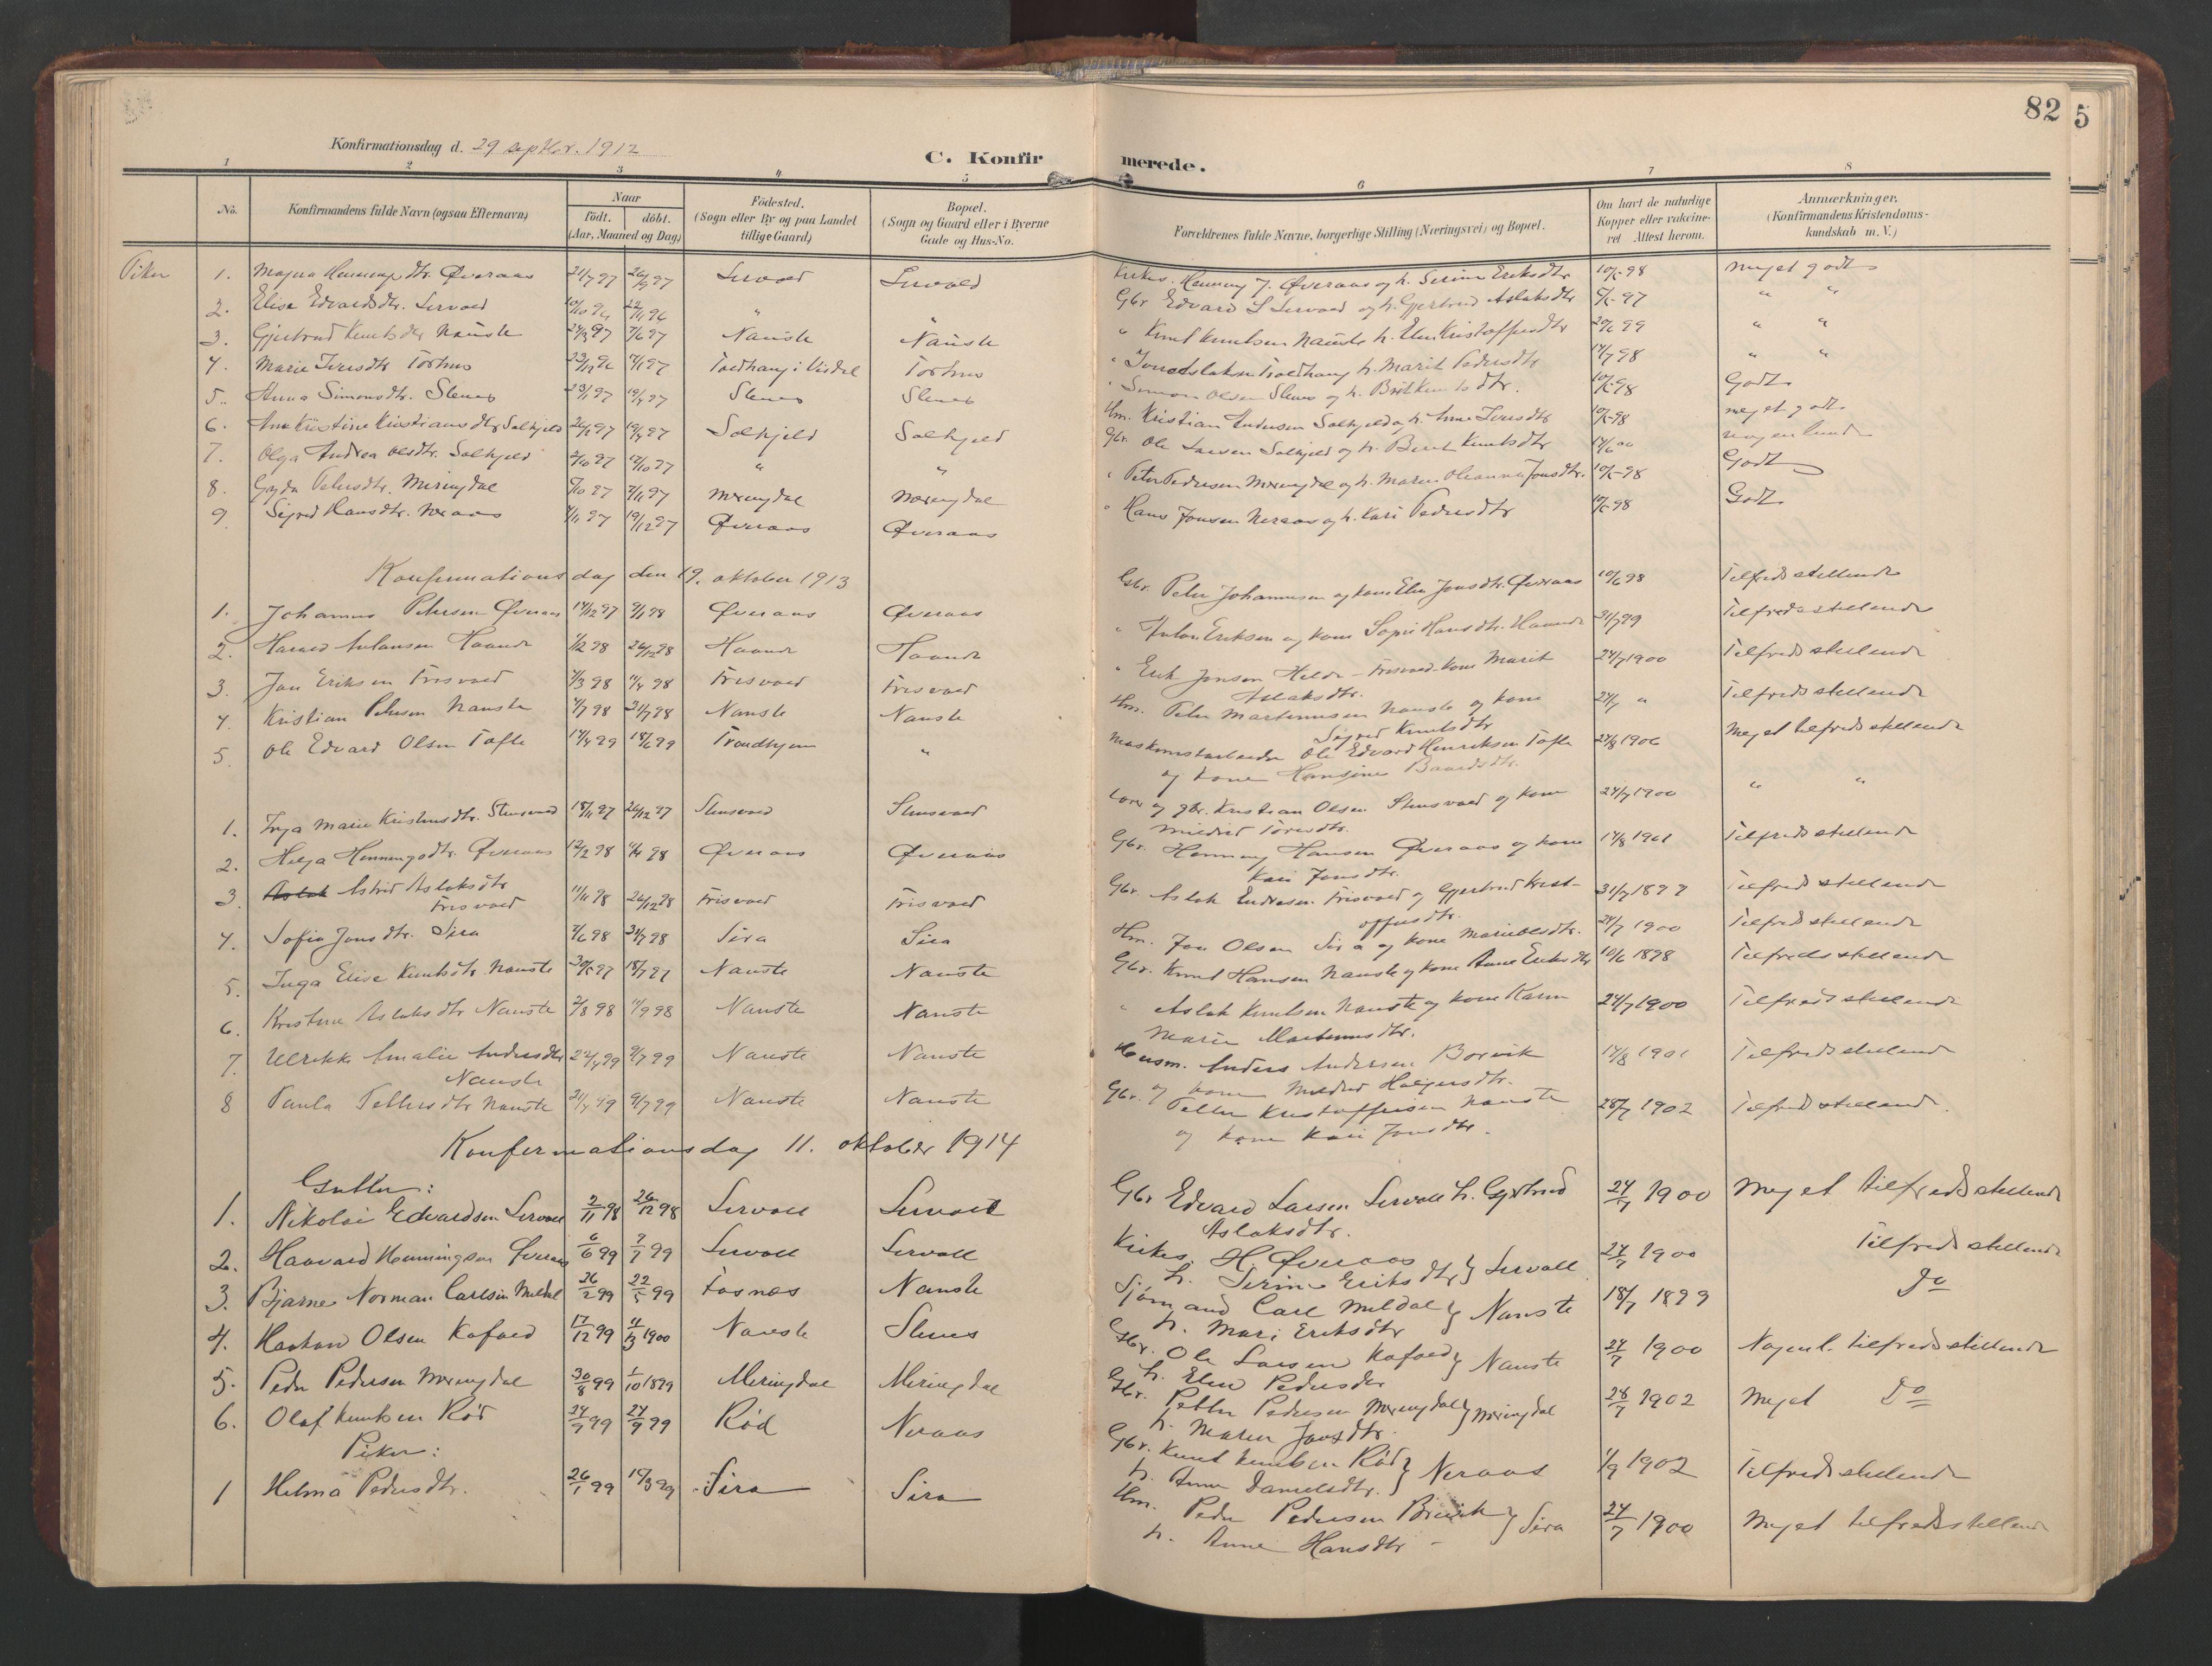 82
5
Konfirmationsdag d. 29 septbr. 1912
C. Konfirmerede.
1 2 3 4 5 6 7 8
No.
Konfirmandens fulde Navn (ogsaa Efternavn)
Naar
født. døbt.
(Aar, Maaned og Dag)
Fødested.
(Sogn eller By og paa Landet
tillige Gaard)
Bopæl.
(Sogn og Gaard eller i Byerne
Gade og Hus-No.
Forældrenes fulde Navne, borgerlige Stilling (Næringsvei) og Bopæl.
Om havt de naturlige
Kopper eller vakcine-
ret Attest herom.
Anmærkninger.
(Konfirmandens Kristendoms-
kundskab m. V.)
Piker 1. Magna Henningsdtr. Øveraas 21/7 97 26/9 97 Servold Servold Kirkes. Henning J. Øveraas og h. Serine Eriksdtr 98 meget godt
2. Elise Edvardsdtr. Servold 10/10 96 22/11 96 " " Gbr Edvard L Servold og h. Gjertrud Aslaksdtr 97 " "
3. Gjertrud Knutsdtr Nauste 97 7/6 97 Nauste Nauste " Knut Knutsen Nauste h. Elen Kristoffersdtr 99 " "
4. Marie Iversdtr Torhus 23/12 96 97 i Torhus " h. Marit Pedersdtr 14/7 98 " "
5. Anna Simonsdtr. Slenes 23/1 97 19/4 97 Slenes Slenes " Simon Olsen Slenes og h. Brit Knutsdtr. 98 Godt
6. Ane Kristine Kristiansdtr Solhjeld 97 19/4 97 Solhjeld Solhjeld Hm. Kristian Andersen Solhjeld og h. Anne Iversdtr 98 meget godt
7. Olga Andrea Olsdtr. Solhjeld 97 97 " " Gbr. Ole Larsen Solhjeld og h. Berit Knutsdtr 14/6 00 nogenlunde
8. Gyda Petersdtr. Meringdal 97 97 Meringdal Meringdal " Peter Pedersen Meringdal og h. Maren Oleanna Jonsdtr. 98 Godt
9. Sigrid Hansdtr. Neraas 97 19/12 97 Øveraas Øveraas " Hans Jonsen Neraas og h. Kari Pedersdtr 98 Godt
Konfirmationsdag den 19. oktober 1913
1. Johannes Petersen Øveraas 14/12 97 9/1 98 Øveraas Øveraas Gbr. Peter Johannesen og kone Elen Jonsdtr. Øveraas 10/6 98 Tilfredsstillende
2. Harald Antonsen Haande 1/12 98 26/12 98 Haande Haande " Anton Eriksen og kone Hansdtr. Haande 31/7 99 Tilfredsstillende
3. Jon Eriksen Frisvold 4/3 98 11/4 98 Frisvold Frisvold " Erik Jonsen Helde - Frisvold kone Marit 24/7 1900 Tilfredsstillende
Aslaksdtr.
4. Kristian Petersen Nauste 4/7 98 31/7 98 Nauste Nauste Hm. Peter Martinussen Nauste og kone 24/7 " Tilfredsstillende
Sigrid Knutsdtr
5. Ole Edvard Olsen Tofte 14/4 99 18/6 99 Trondhjem " Maskinistarbeider Ole Edvard Henriksen Tofte 1906 Meget tilfredsstillende
og kone Hansine Baardsdtr.
1. Inga Marie Kristensdtr. Stensvold 18/11 97 26/12 97 Stensvold Stensvold og gbr. Kristian Olsen Stensvold og kone 24/7 1900 " "
Mildrid Toresdtr.
2. Helga Henningsdtr. Øveraas 12/2 98 98 Øveraas Øveraas Gbr. Henning Hansen Øveraas og kone 14/8 1901 Tilfredsstillende
Kari Jonsdtr.
3. Aslak Astrid Aslaksdtr 11/11 98 26/12 98 Frisvold Frisvold Gbr. Aslak Endresen Frisvold og Gjertrud Krist- 31/7 1899 Tilfredsstillende
Frisvold
offersdtr.
4. Sofie Jonsdtr. Sira 7/6 98 31/7 98 Sira Sira Hm. Jon Olsen Sira og kone Marie Olsdtr. 24/7 1900 Tilfredsstillende
5. Inga Elise Knutsdtr. Nauste 97 18/7 97 Nauste Nauste Gbr. Knut Hansen Nauste og kone Anne Eriksdtr 10/6 1898 Tilfredsstillende
6. Kristine Aslaksdtr Nauste 2/8 98 11/9 98 Nauste Nauste " Aslak Knutsen Nauste og kone Karen 24/7 1900 Tilfredsstillende
Marie Martinusdtr.
7. Ulrikke Amalie Andersdtr 22/4 99 9/7 99 Nauste Nauste Husm. Anders Andersen Borvik 14/8 1901 Tilfredsstillende
Nauste
og kone Mildrid Holgersdtr.
8 Paula Pettersdtr Nauste 99 9/7 99 Nauste Nauste Gbr. Petter Kristoffersen Nauste 28/7 1902 Tilfredsstillende.
og kone Kari Jonsdtr.
Konfirmationsdag 11. oktober 1914
Gutter:
1. Nikolai Edvardsen Servoll 2/11 98 26/12 98 Servoll Servoll Gbr Edvard Larsen Servoll h. Gjertrud 24/7 1900 Meget tilfredsstillende
Aslaksdtr.
2. Haavard Henningsen Øveraas 6/6 99 9/7 99 Servoll Servoll Kirkes. H Øveraas } Servoll 24/7 1900 Tilfredsstillende
h. Serine Eriksdtr
3. Bjarne Norman Carlsen Meldal 26/2 99 22/5 99 Fosnes Nauste Sjømand Carl Meldal } Nauste 18/7 1899 Do
h. Mari Eriksdtr
4. Haakon Olsen Kafoed 17/12 99 4/3 1900 Nauste Slenes Gbr. Ole Larsen Kafoed } Nauste 24/7 1900 Nogenl. tilfredsstillende
h. Elen Pedersdtr
5. Peder Pedersen Meringdal 30/8 99 1/10 1899 Meringdal Meringdal Gbr. Petter Pedersen Meringdal } Meringdal 28/7 1902 Meget Do
h. Maren Jonsdtr.
6. Olaf Knutsen Rød 24/9 99 Rød Neraas Gbr. Knut Knutsen Rød } Neraas 1/9 1902 Tilfredsstillende
h. Anne Danielsdtr.
Piker:
1 Helma Pedersdtr. 26/1 99 19/3 99 Sira Sira Hm. Peder Pedersen Breivik } Sira 24/7 1900 Meget tilfredsstillende
h. Anne Hansdtr -